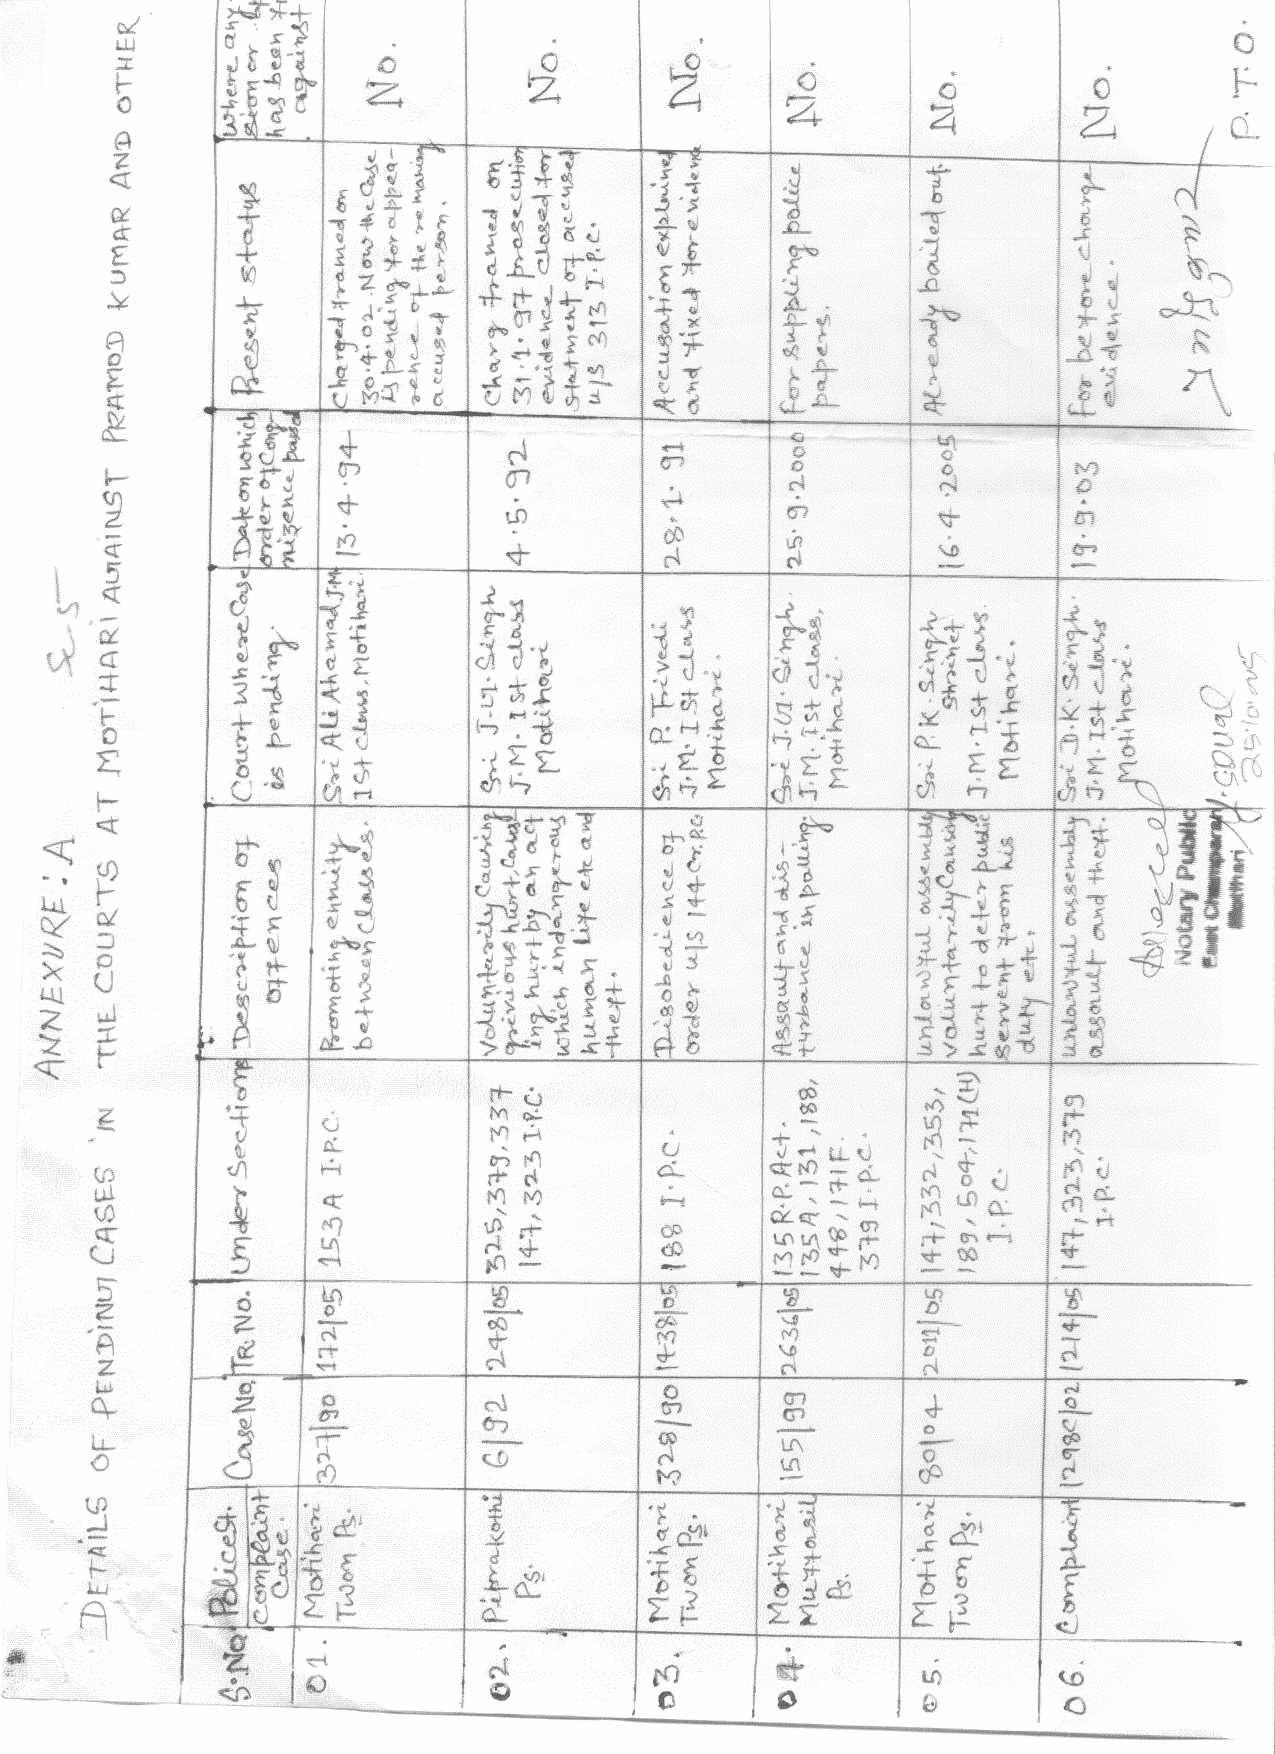 ANNEXURE: A
DETAILS OF PENDING CASES IN THE COURTS AT MOTIHARI AGAINST PRAMOD KUMAR AND OTHER
S.No Police St. Case No. TR. No. Under Sections Description of Court where Case Date on which Present status where any
Complaint Case. offences is pending. order of Cong- nizence passed has been against
01. Motihari 327/90 172/05 153A I.P.C. Promoting enmity Sri Ali Ahamad J.M. 13.4.94 Charged framed on No.
Twon Ps. between Classes. 1st class, Motihari. 30.4.02. Now the Case
is pending for appea-
rence of the remaning
accused person.
02. Piprakothi 6/92 248/05 325, 379, 337 Volunteerily Causing Sri J.G. Singh 4.5.92 Charg framed on No.
Ps. 147, 323 I.P.C. grievous hurt, Caus- J.M. Ist class 31.1.97 prosecution
ing hurt by an act Motihari evidence closed for
which endangerous statment of accused
human life etc and u/s 313 I.P.C.
theft.
03. Motihari 328/90 1438/05 188 I.P.C. Disobedience of Sri P. Trivedi 28.1.91 Accusation explained No.
Twon Ps. order u/s 144 Cr.P.C J.M. Ist class and fixed for evidence
Motihari.
04. Motihari 155/99 2636/05 135 R.P. Act. Assault and dis- Sri J.G. Singh. 25.9.2000 For supplying police No.
Muffasil 135A, 131, 188, turbance in polling. J.M. Ist class, papers.
Ps. 448, 171F. Motihari.
379 I.P.C.
05. Motihari 80/04 2011/05 147, 332, 353, unlawful assembly Sri P.K. Singh 16.4.2005 Already bailed out. No.
Twon Ps. 189, 504, 171(H) voluntarily Causing Shrinet
I.P.C. hurt to deter public J.M. Ist class.
servent from his Motihari.
duty etc.
06. Complaint 1298C/02 1214/05 147, 323, 379 unlawful assembly Sri D.K. Singh. 19.9.03 For before charge No.
I.P.C. assault and theft. J.M. Ist class evidence.
Motihari.
Notary Public
East Champaran
Motihari
P.T.O.